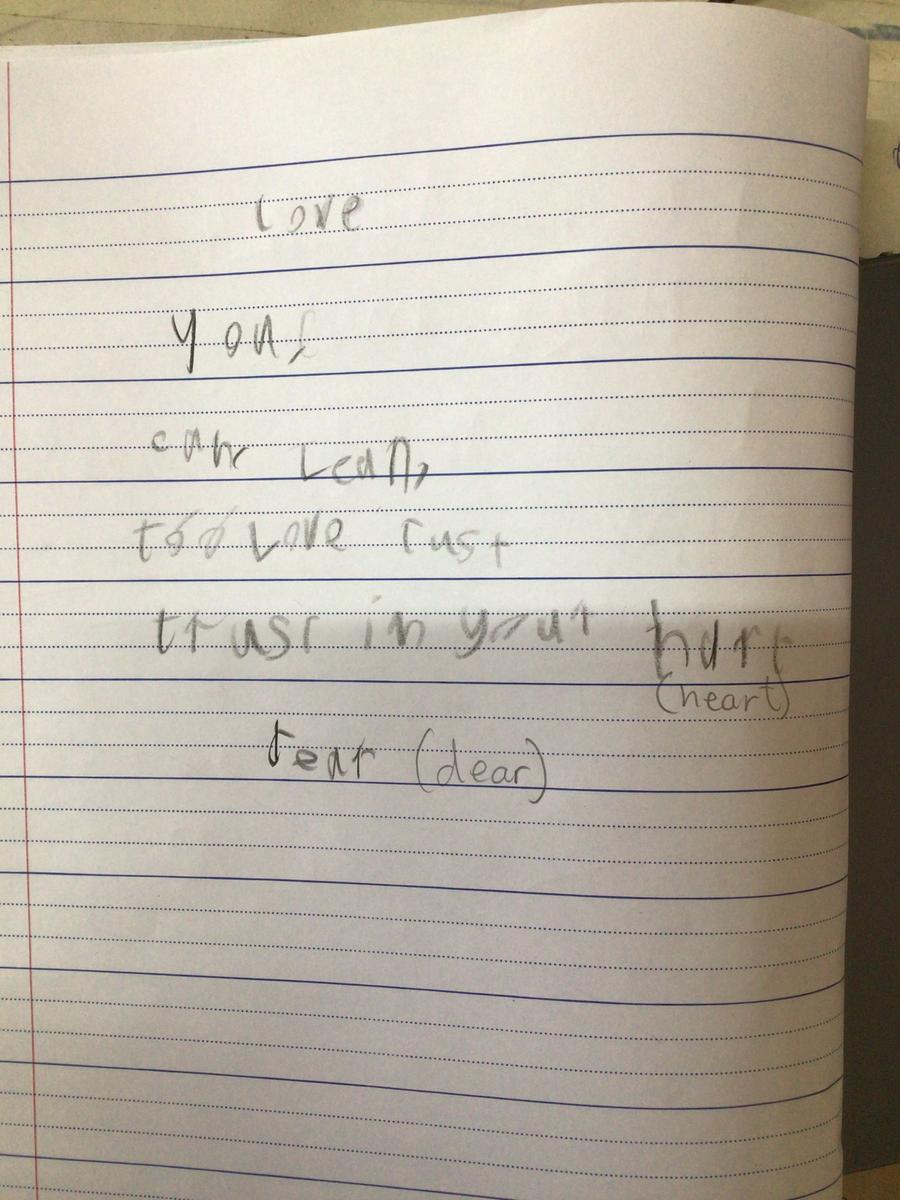 Love
you,
can Lean,
too Love rust
trust in your hart
(heart)
tear (dear)